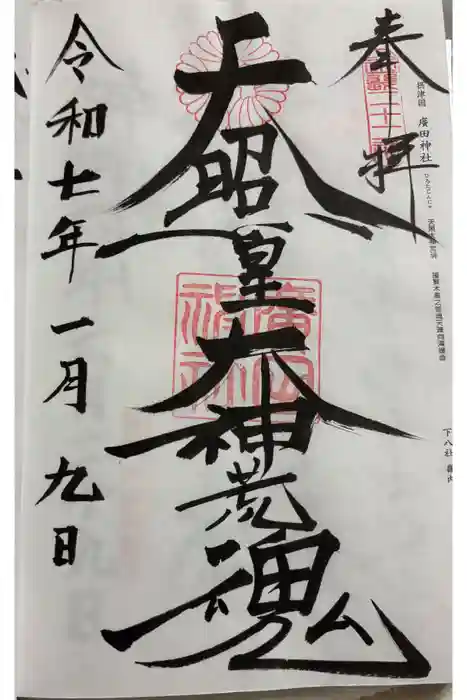 奉拝
摂津國 廣田神社
天照皇大神荒魂
廣田神社
令和七年一月九日